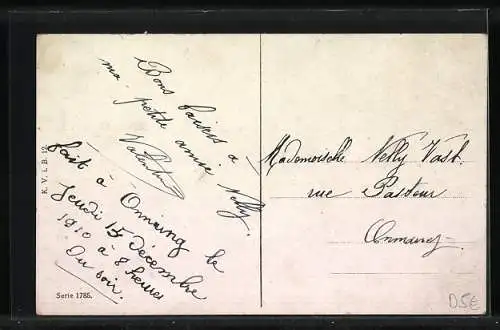 Bons baisers à
ma petite amie Nelly.
Valentin
fait à Onnaing le
Jeudi 15 Décembre
1910 à 8 heures
Du soir.
Mademoiselle Nelly Vast
rue Pasteur
Onnaing
K. V. i. B. 12.
Serie 1785.
D5E